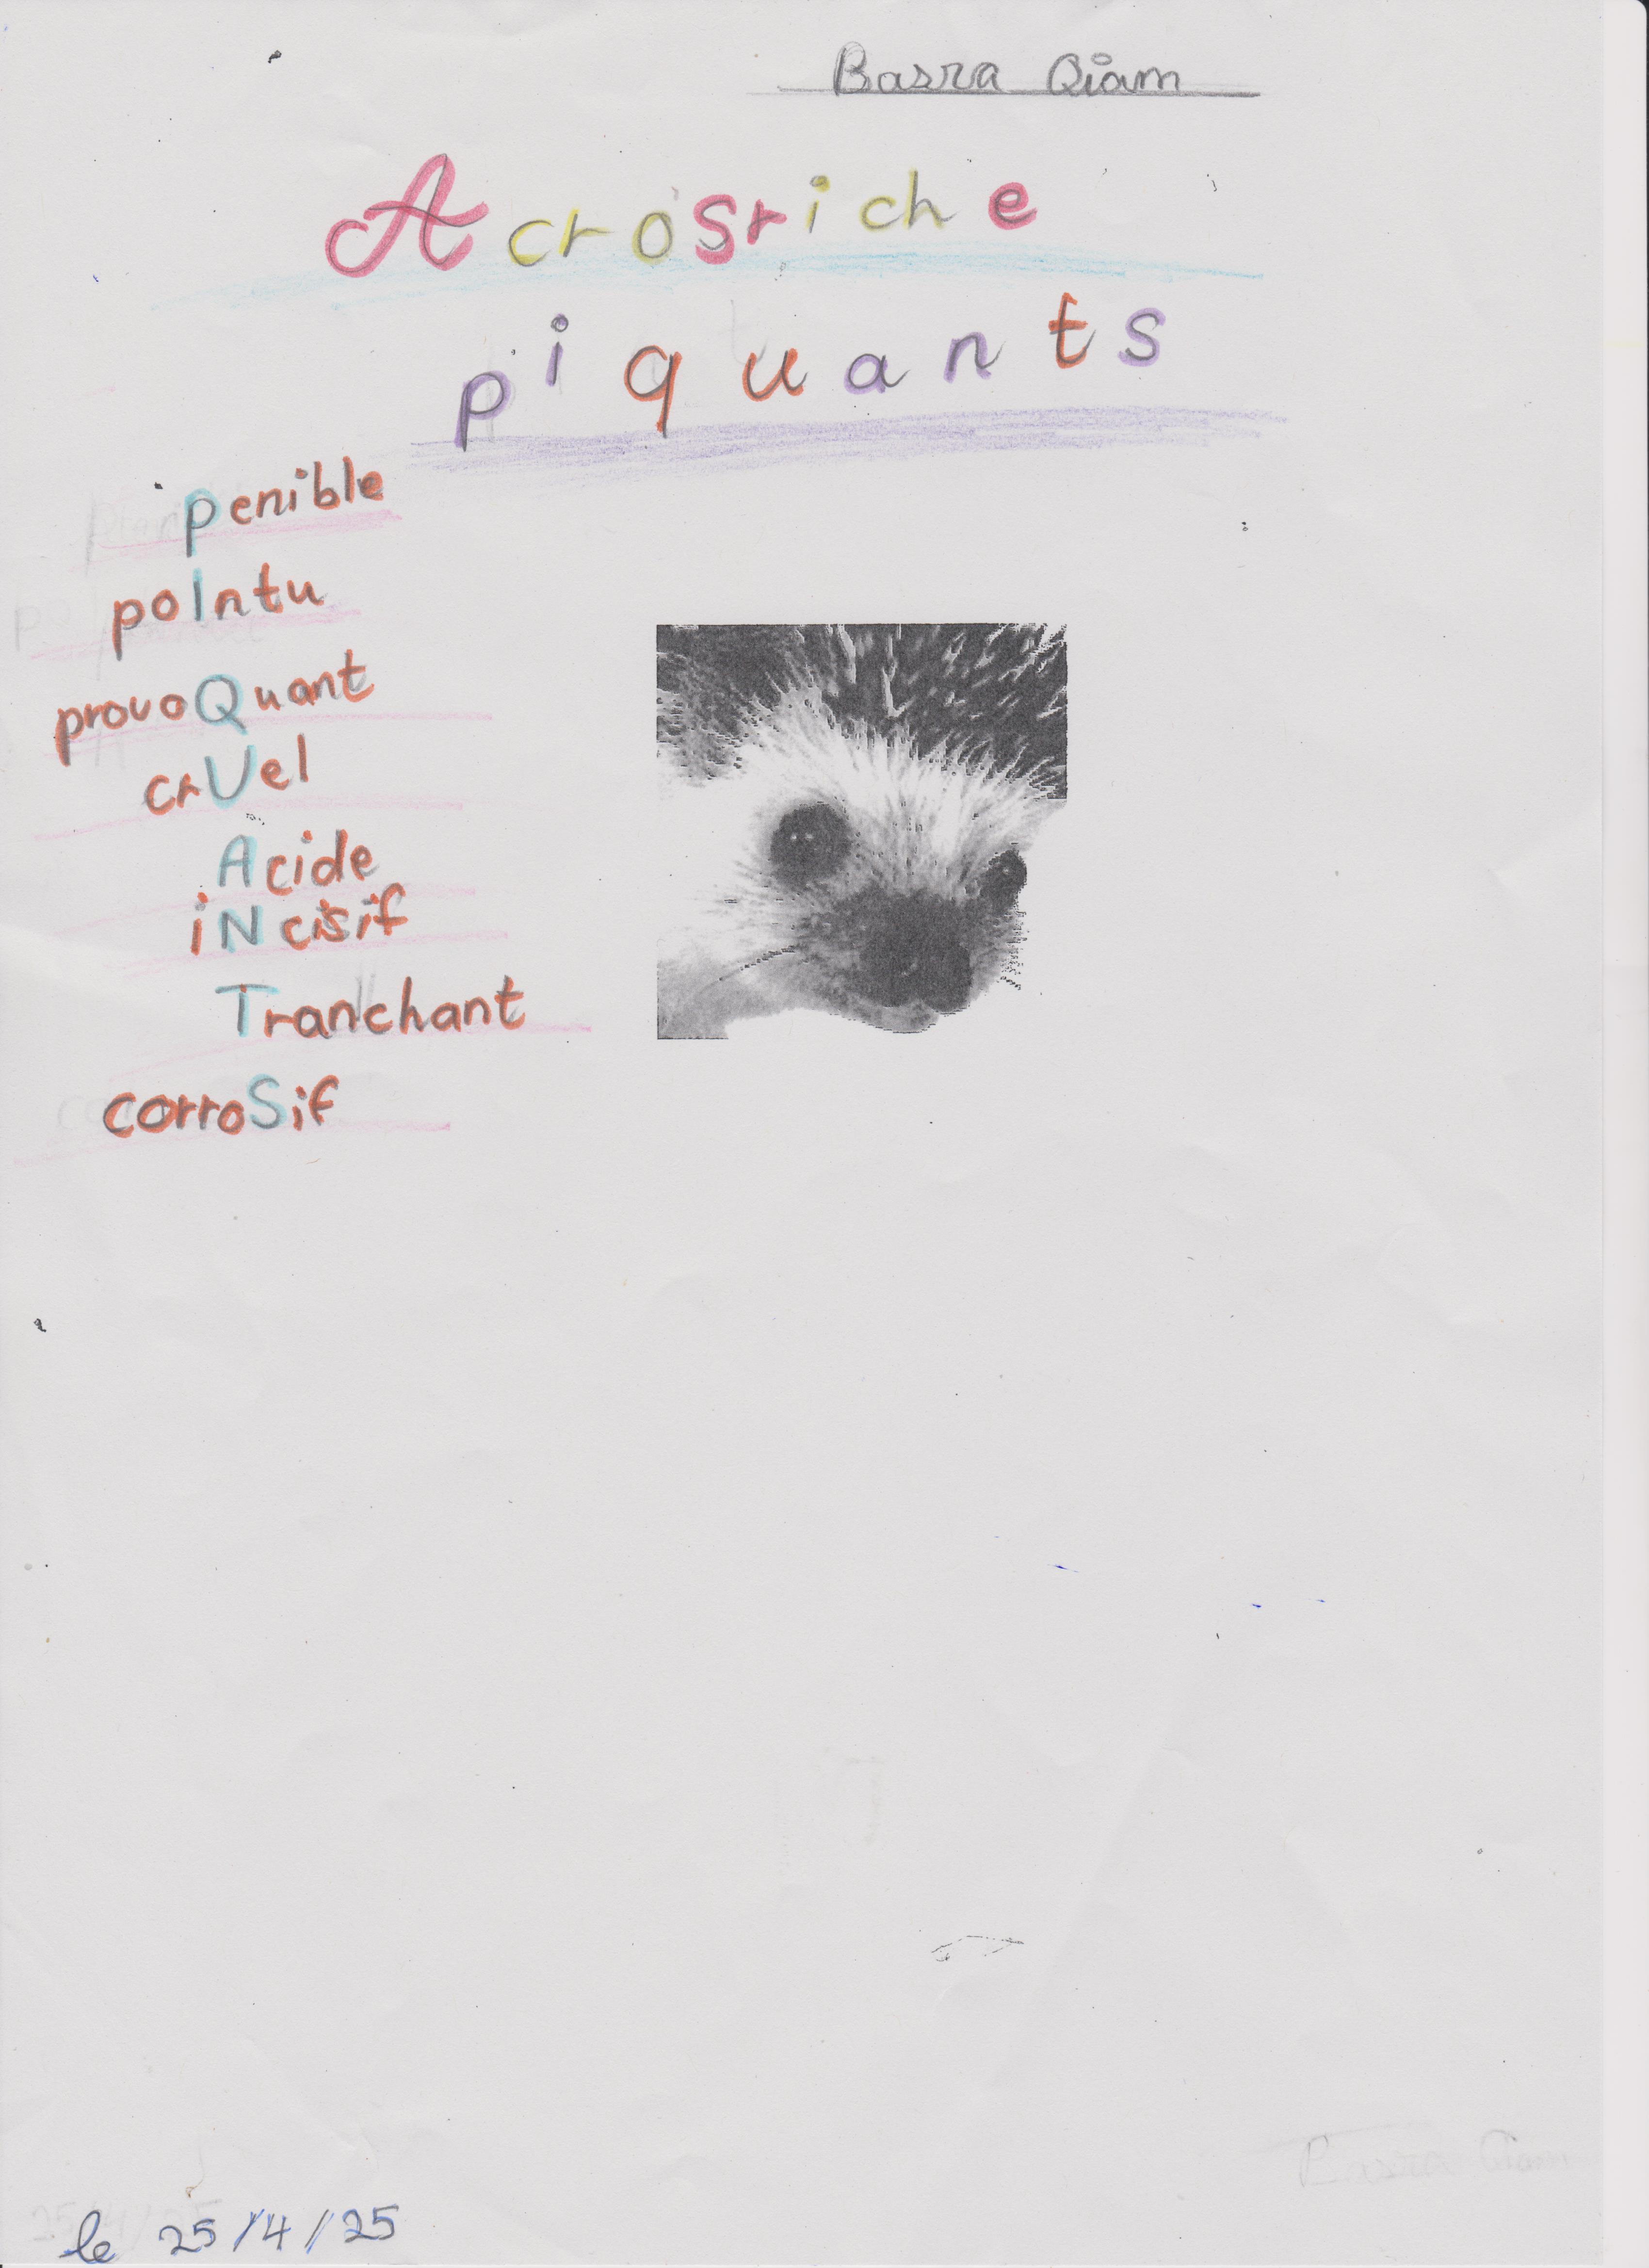 Basra Qiam
Acrosriche
piquants
penible
poIntu
provoQuant
crUel
Acide
iNcisif
Tranchant
corroSif
le 25/4/25